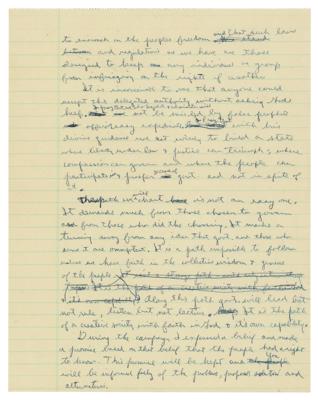 to encroach on the peoples freedom and that such laws
and regulations as we have are those
designed to keep any individual or group
from infringing on the rights of another.
It is inconceivable to me that anyone could
accept this delegated authority without asking Gods
help. not be misled by false prophets
of expediency but with his
divine guidance act wisely to build a state
where liberty under law & justice can triumph; where
compassion can govern and where the people can
participate & prosper because of govt. and not in spite of
it.
The path we will chart is not an easy one.
It demands much from those chosen to govern
from those who did the choosing. It makes a
turning away from any idea that govt. and those who
serve it are omnipotent. It is a path impossible to follow
unless we have faith in the collective wisdom & genius
of the people.
Along this path govt. will lead but
not rule, listen but not lecture. It is the path
of a creative society with faith in God & its own capability.
During the campaign, I expressed belief and made
a promise based on that belief that the people had a right
to know. This promise will be kept and you
will be informed fully of the problems, proposed solution and
alternatives.